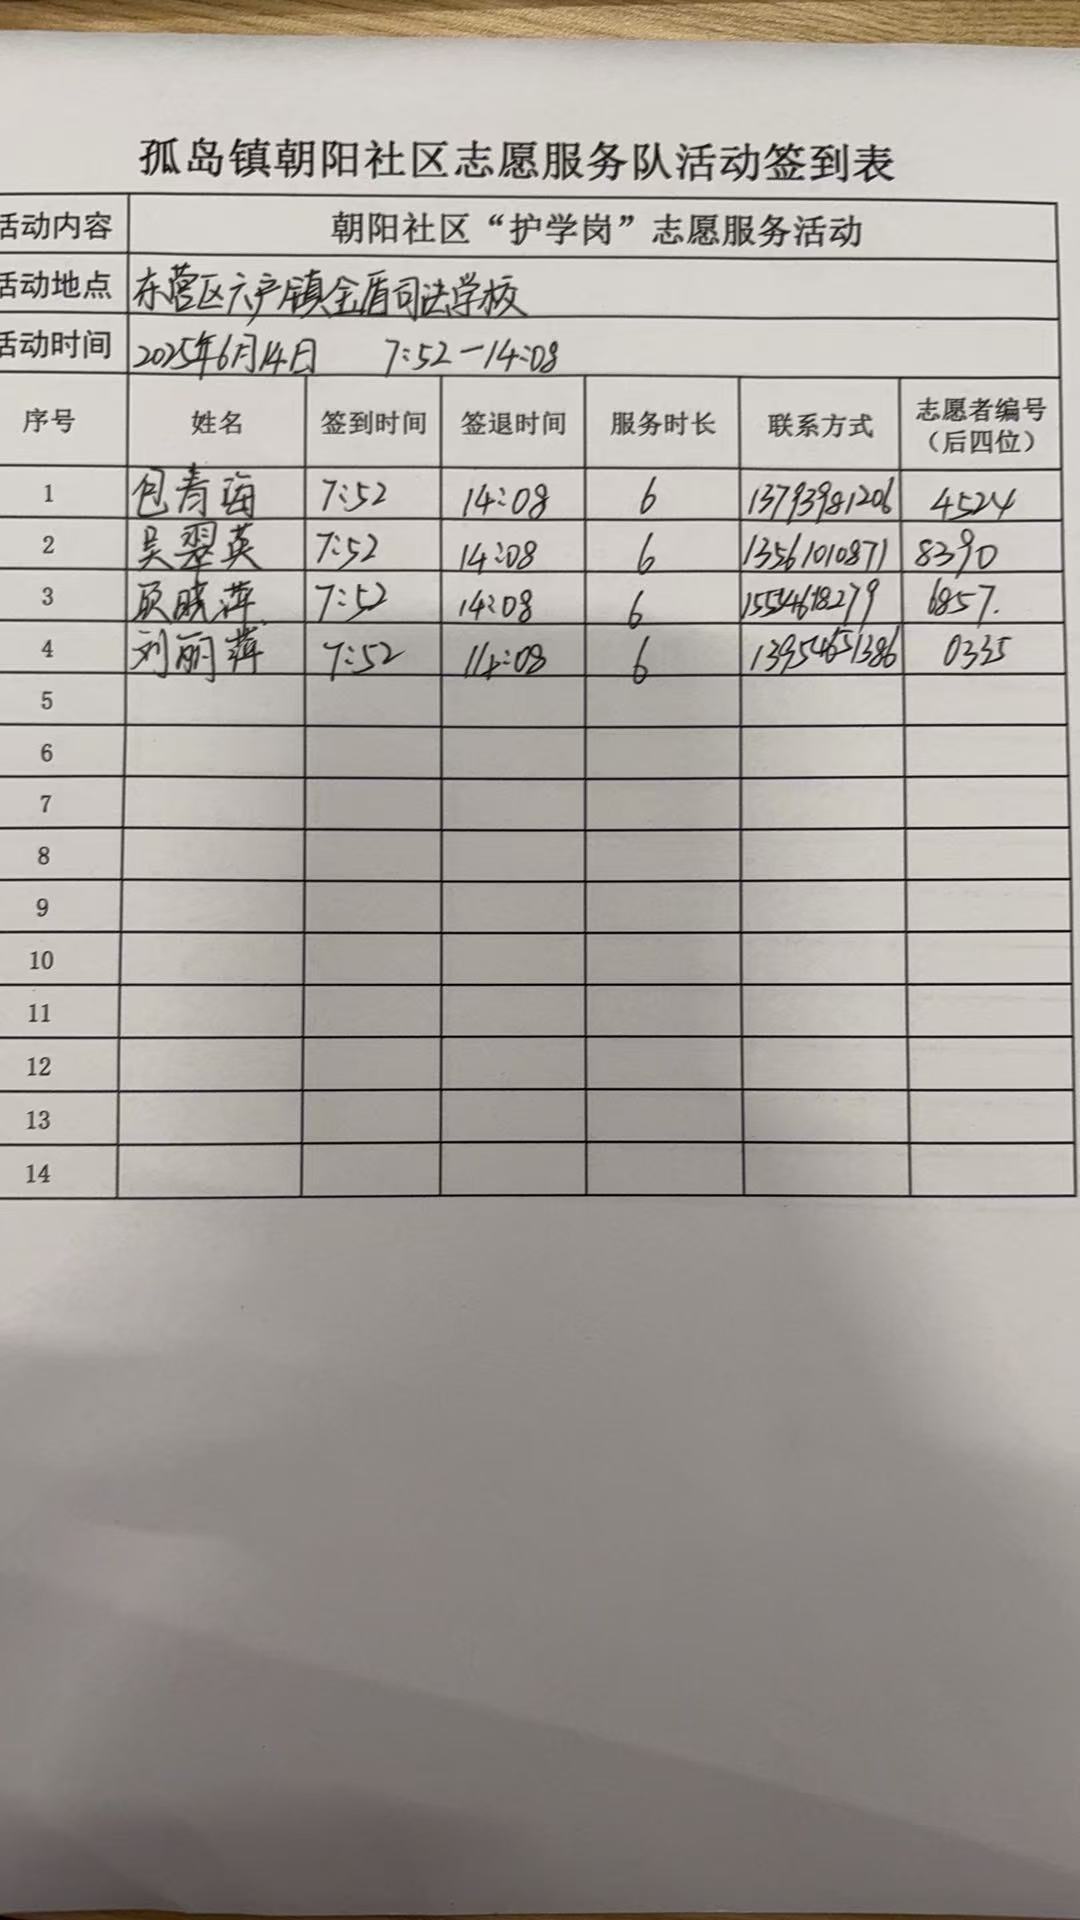 孤岛镇朝阳社区志愿服务队活动签到表
活动内容 朝阳社区“护学岗”志愿服务活动
活动地点 东营区六户镇金盾司法学校
活动时间 2025年6月14日 7:52—14:08
序号 姓名 签到时间 签退时间 服务时长 联系方式 志愿者编号（后四位）
1 包青海 7:52 14:08 6 13793981206 4524
2 吴翠英 7:52 14:08 6 13561010871 8390
3 顾晓萍 7:52 14:08 6 15554618279 6857.
4 刘丽萍 7:52 14:08 6 13954651386 0335
5
6
7
8
9
10
11
12
13
14